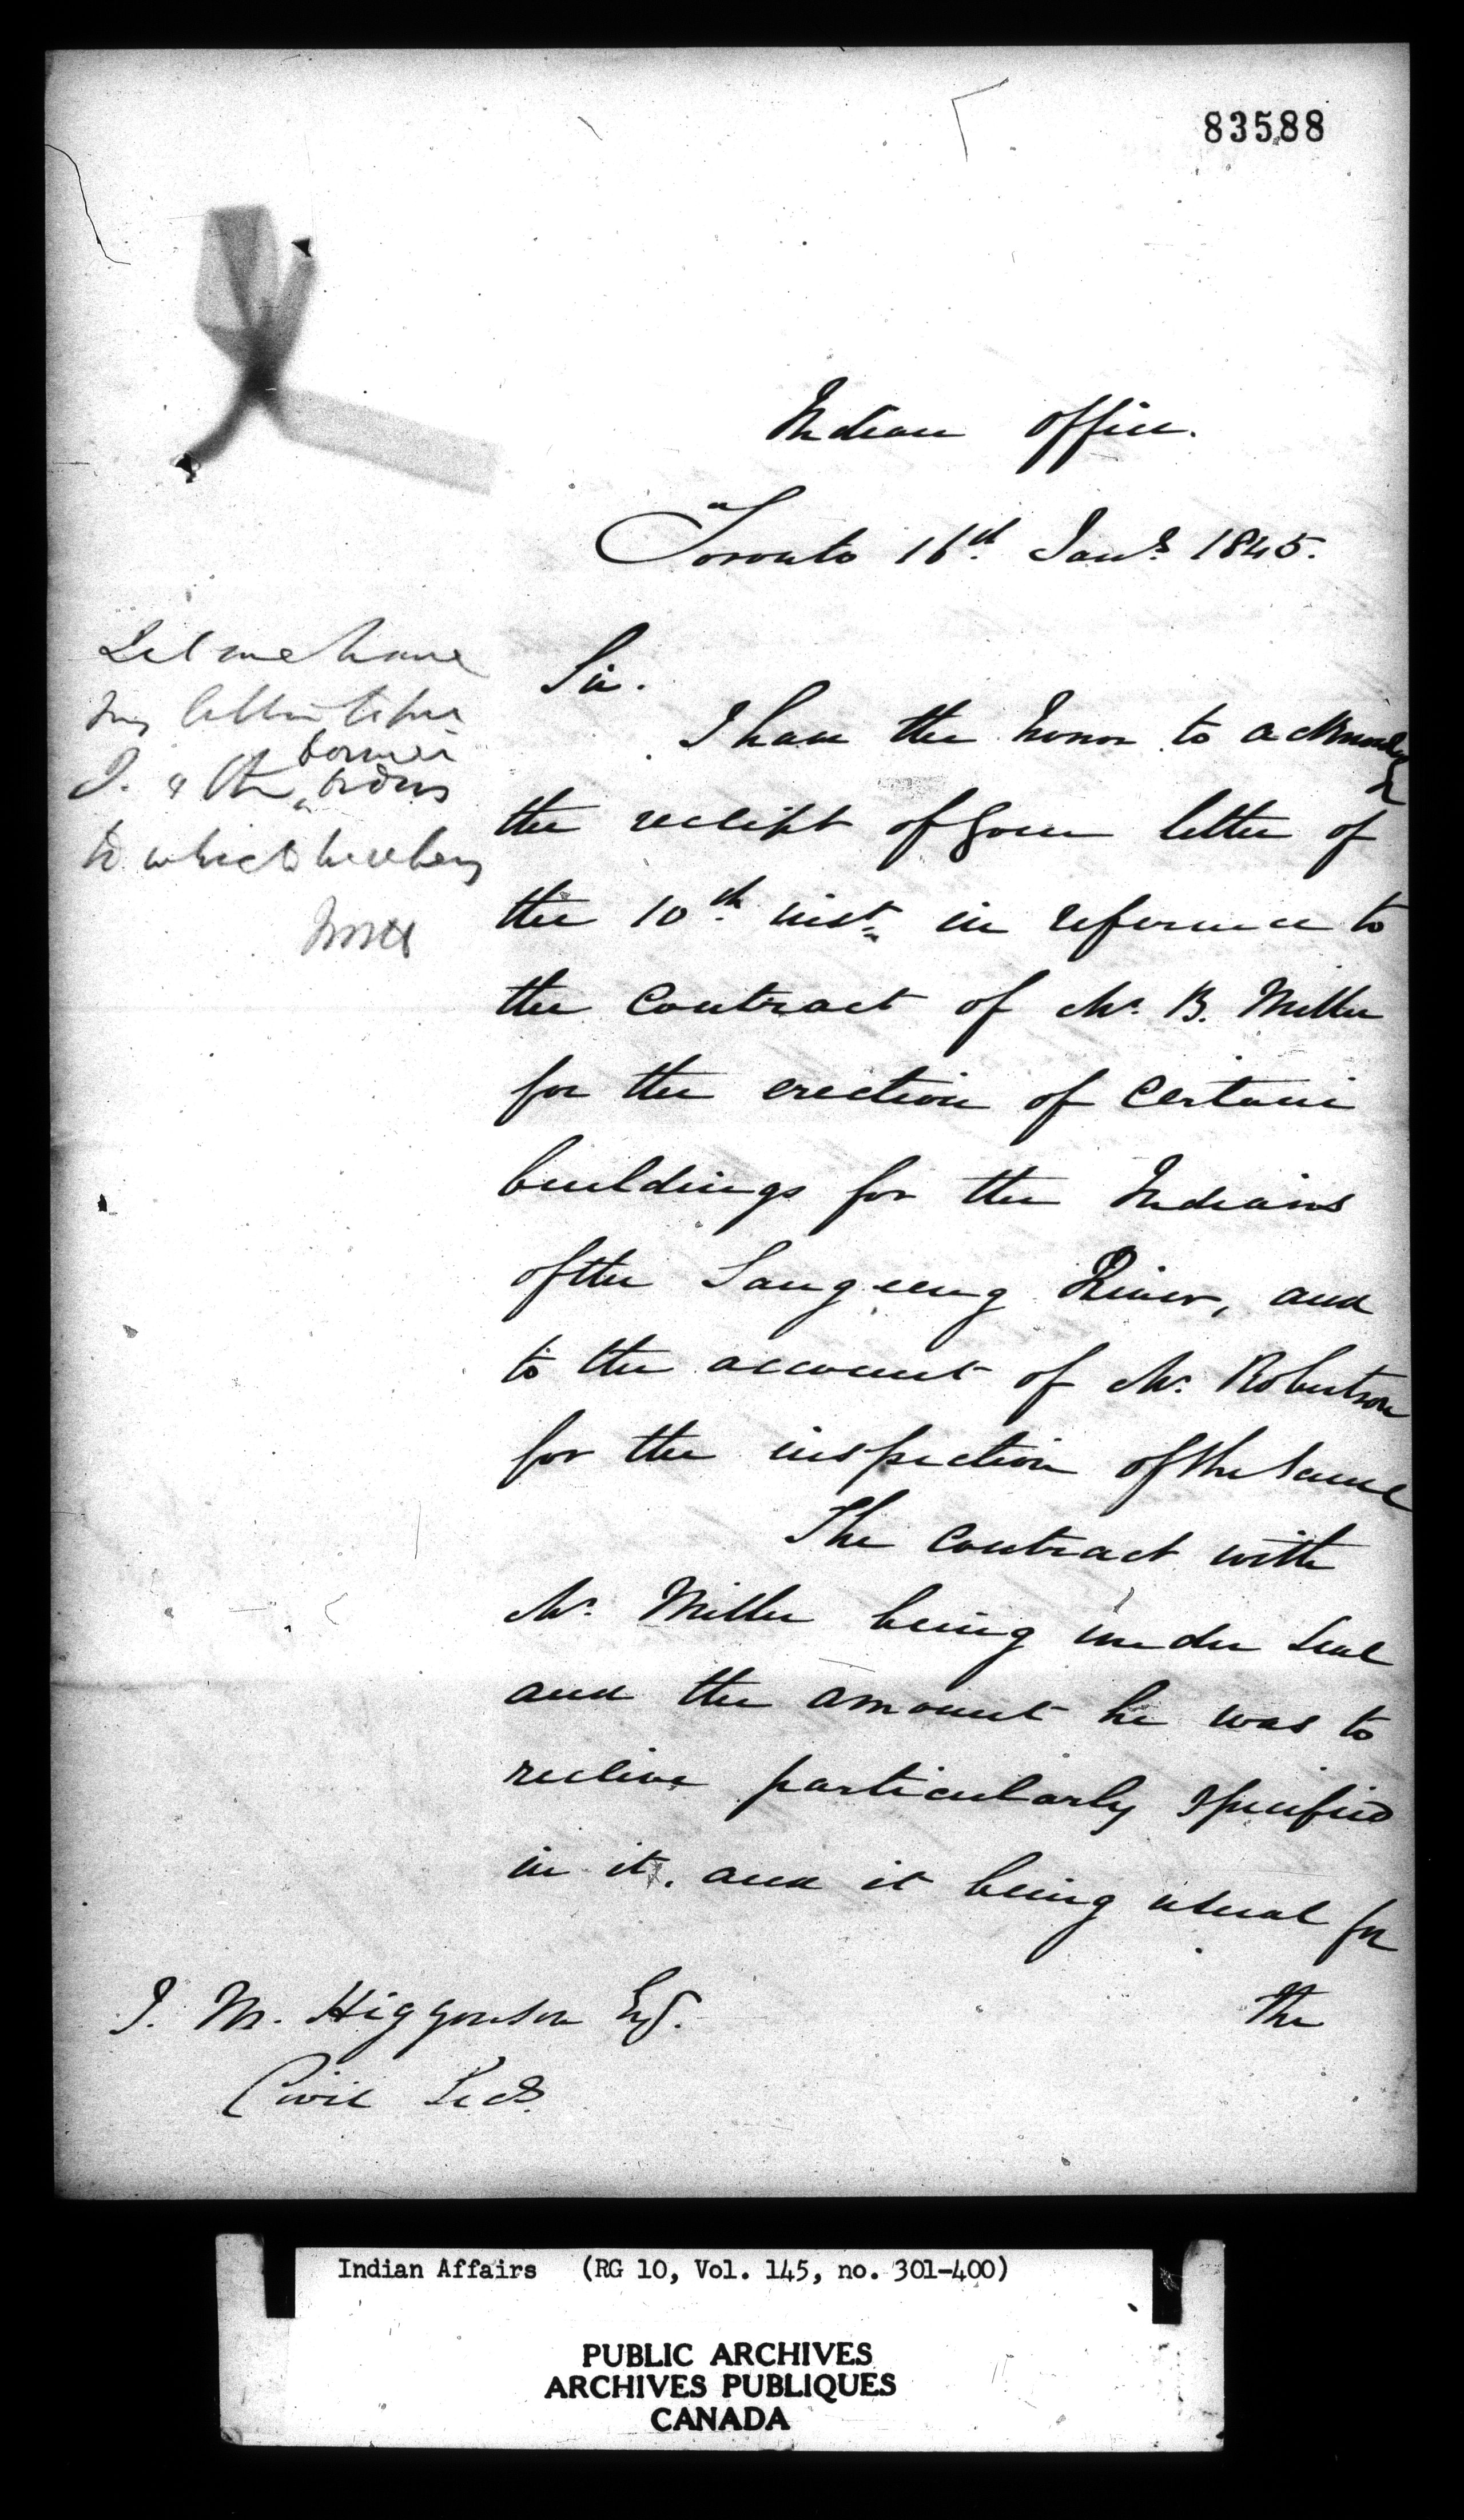 83588
Indian Office.
Toronto 16th Jany. 1845.
Let me have
my letter
J. & the former
to which he
JMH
Sir.
I have the honor to acknowledge
the receipt of your letter of
the 10th inst. in reference to
the Contract of Mr. B. Miller
for the erection of Certain
buildings for the Indians
of the Saugeeng River, and
to the account of Mr. Robertson
for the inspection of the same
The Contract with
Mr. Miller being under Seal
and the amount he was to
receive particularly specified
in it, and it being usual for
the
J. M. Higginson Esq.
Civil Secy.
Indian Affairs (RG 10, Vol. 145, no. 301-400)
PUBLIC ARCHIVES
ARCHIVES PUBLIQUES
CANADA